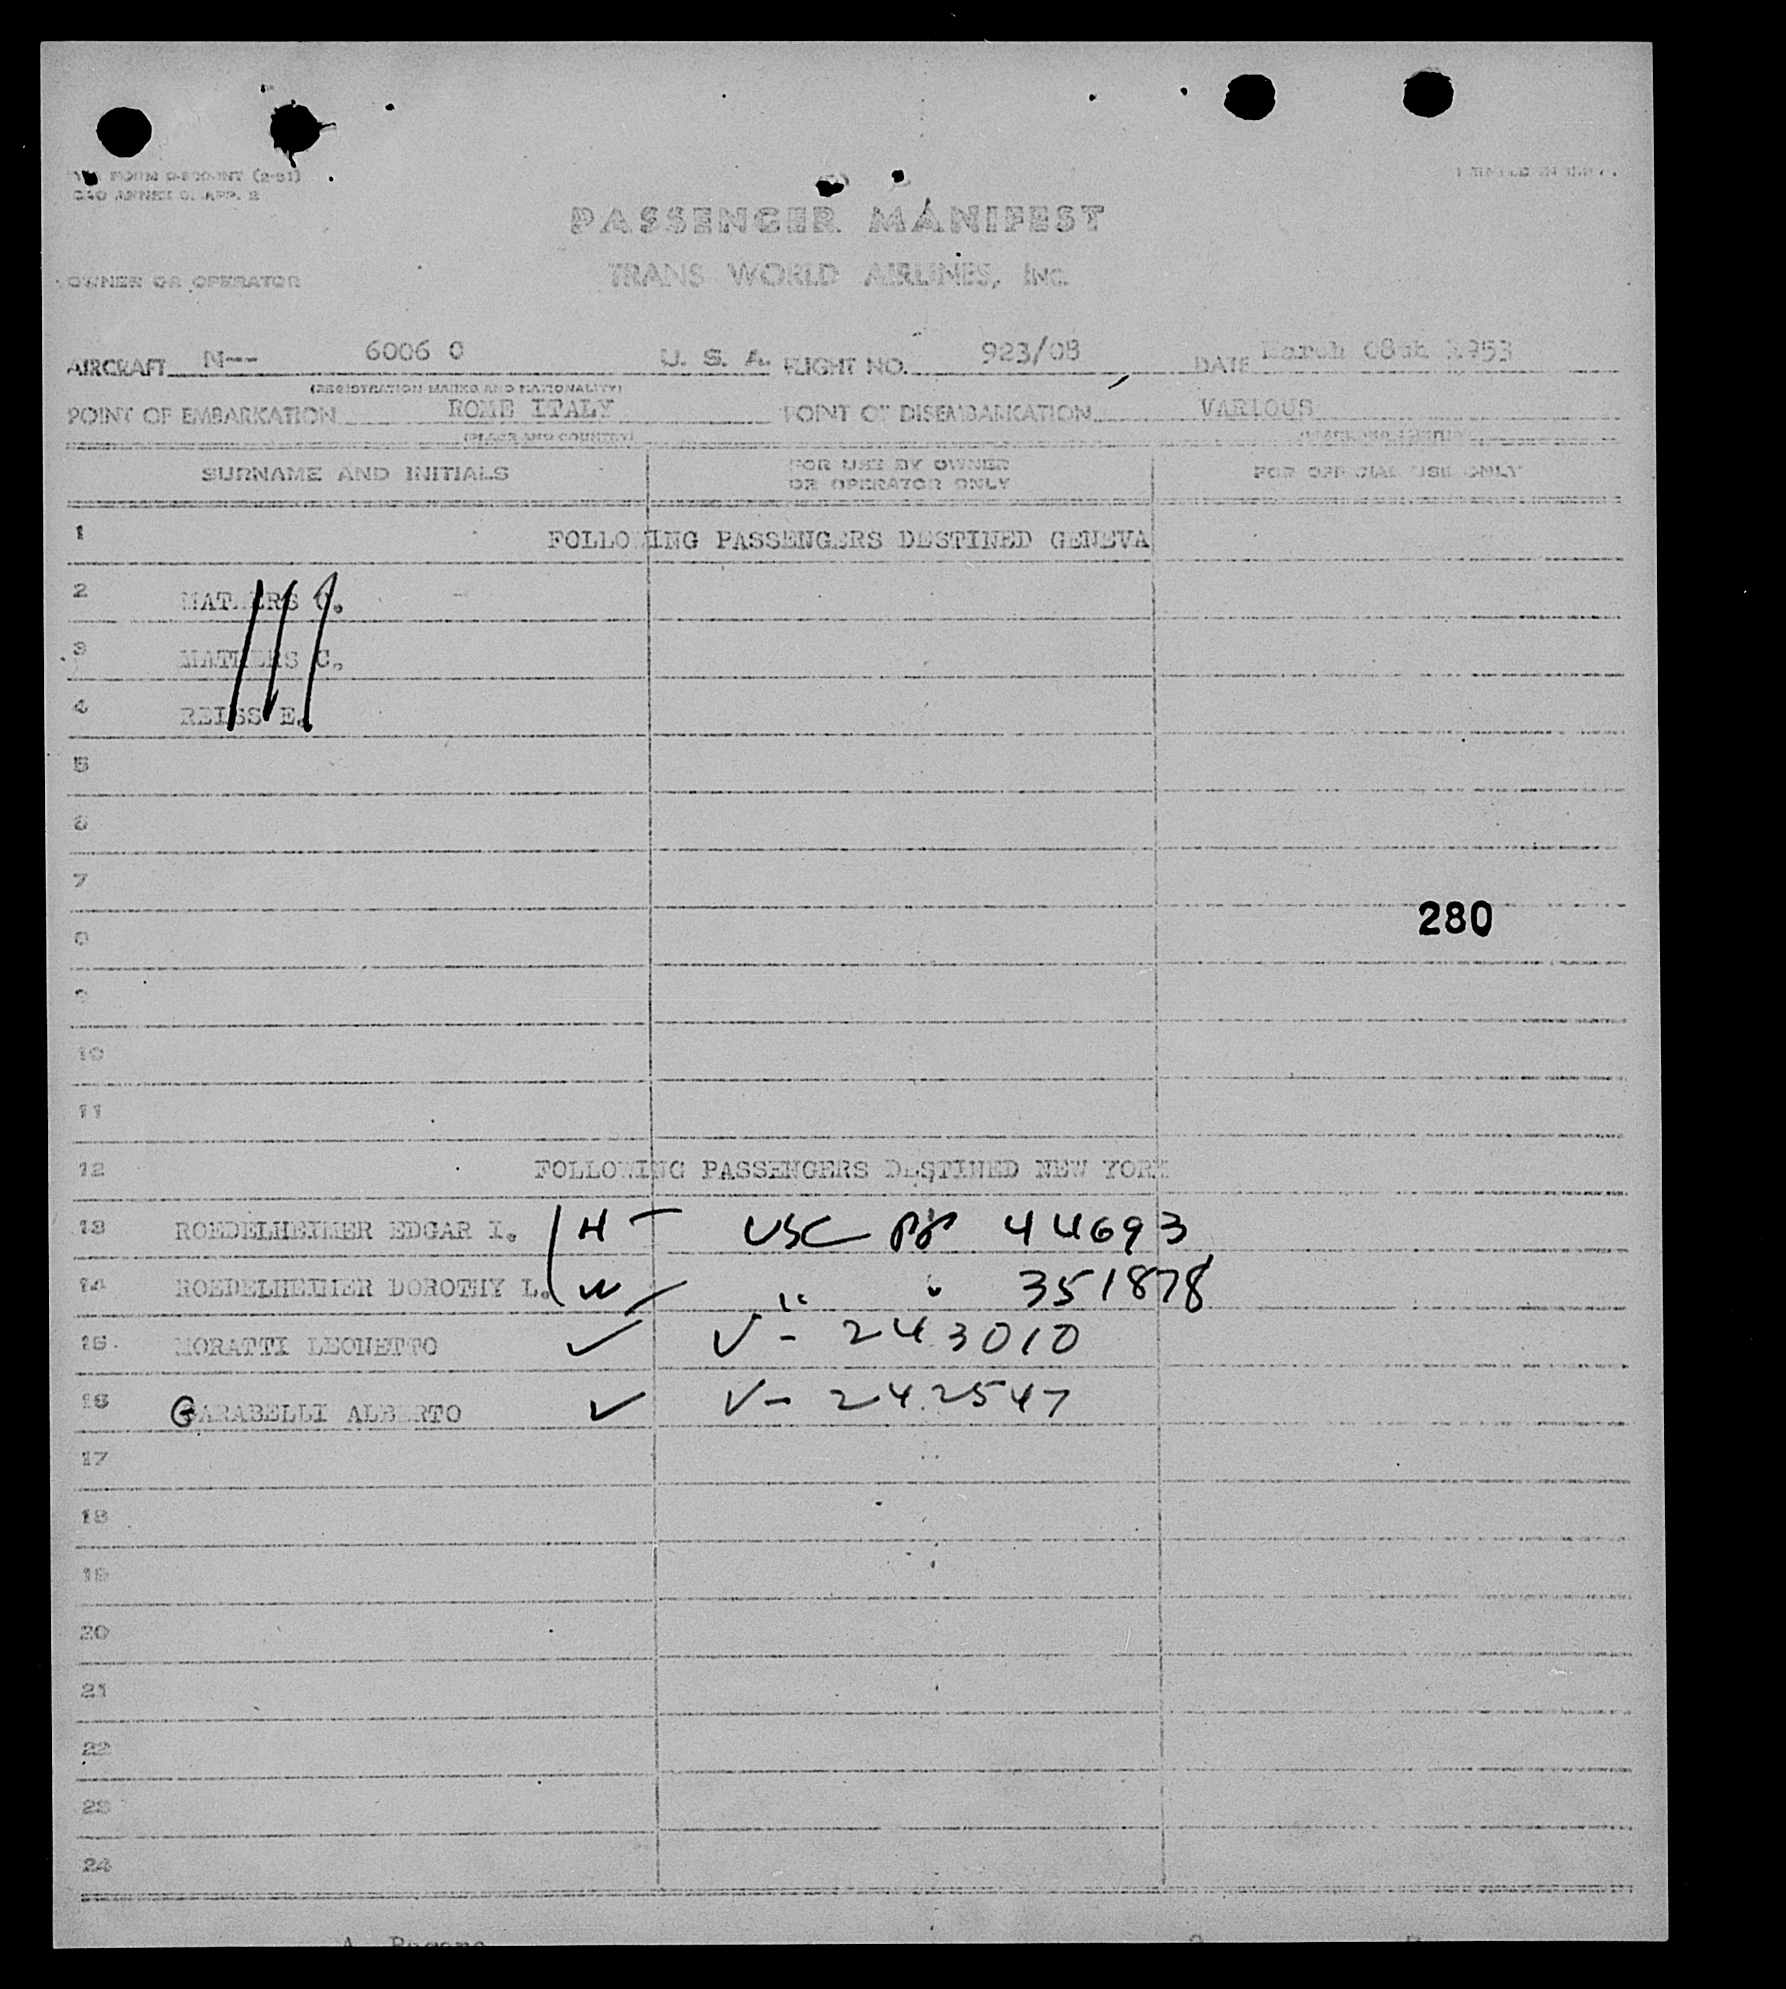 FORM (2-51)
PRINTED IN U.S.A.
PASSENGER MANIFEST
OWNER OR OPERATOR TRANS WORLD AIRLINES, INC.
AIRCRAFT N-- 6006 0 U. S. A. FLIGHT NO. 923/08 DATE March 08th 1953
(REGISTRATION MARKS AND NATIONALITY)
POINT OF EMBARKATION ROME ITALY POINT OF DISEMBARKATION VARIOUS
(PLACE AND COUNTRY) (PLACE AND COUNTRY)
SURNAME AND INITIALS FOR USE BY OWNER OR OPERATOR ONLY FOR OFFICIAL USE ONLY
1 FOLLOWING PASSENGERS DESTINED GENEVA
2 MATHERS
3 MATHERS C.
4 REISS E.
5
6
7
280
8
9
10
11
12 FOLLOWING PASSENGERS DESTINED NEW YORK
13 ROEDELHEIMER EDGAR I. H - USC PP 44693
14 ROEDELHEIMER DOROTHY L. W " " 351878
15. MORATTI LEONETTO ✓ V - 243010
16 GARABELLI ALBERTO ✓ V - 242547
17
18
19
20
21
22
23
24